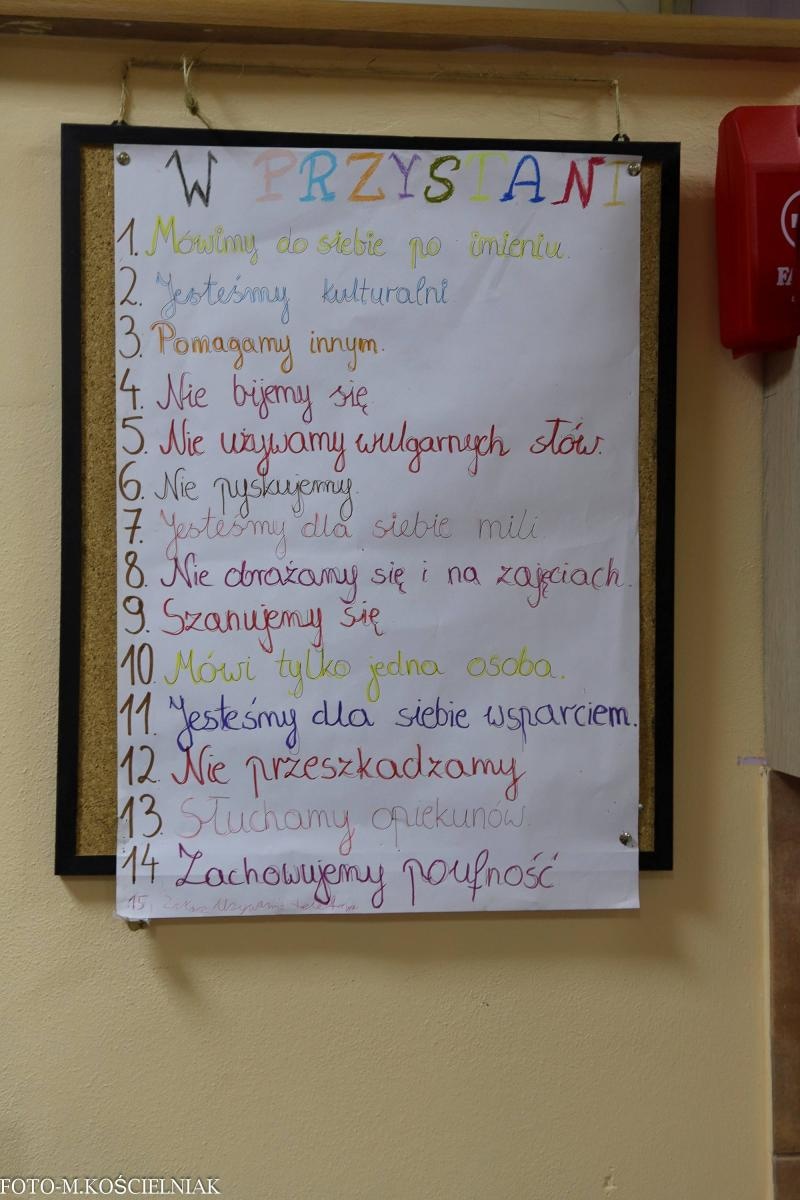 W PRZYSTANI
1. Mówimy do siebie po imieniu.
2. Jesteśmy kulturalni
3. Pomagamy innym.
4. Nie bijemy się
5. Nie używamy wulgarnych słów.
6. Nie pyskujemy.
7. Jesteśmy dla siebie mili.
8. Nie obrażamy się i na zajęciach.
9. Szanujemy się
10. Mówi tylko jedna osoba.
11. Jesteśmy dla siebie wsparciem.
12. Nie przeszkadzamy
13. Słuchamy opiekunów.
14 Zachowujemy poufność
15.
FOTO-M.KOŚCIELNIAK